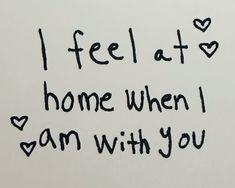 I feel at
home when I
am with you